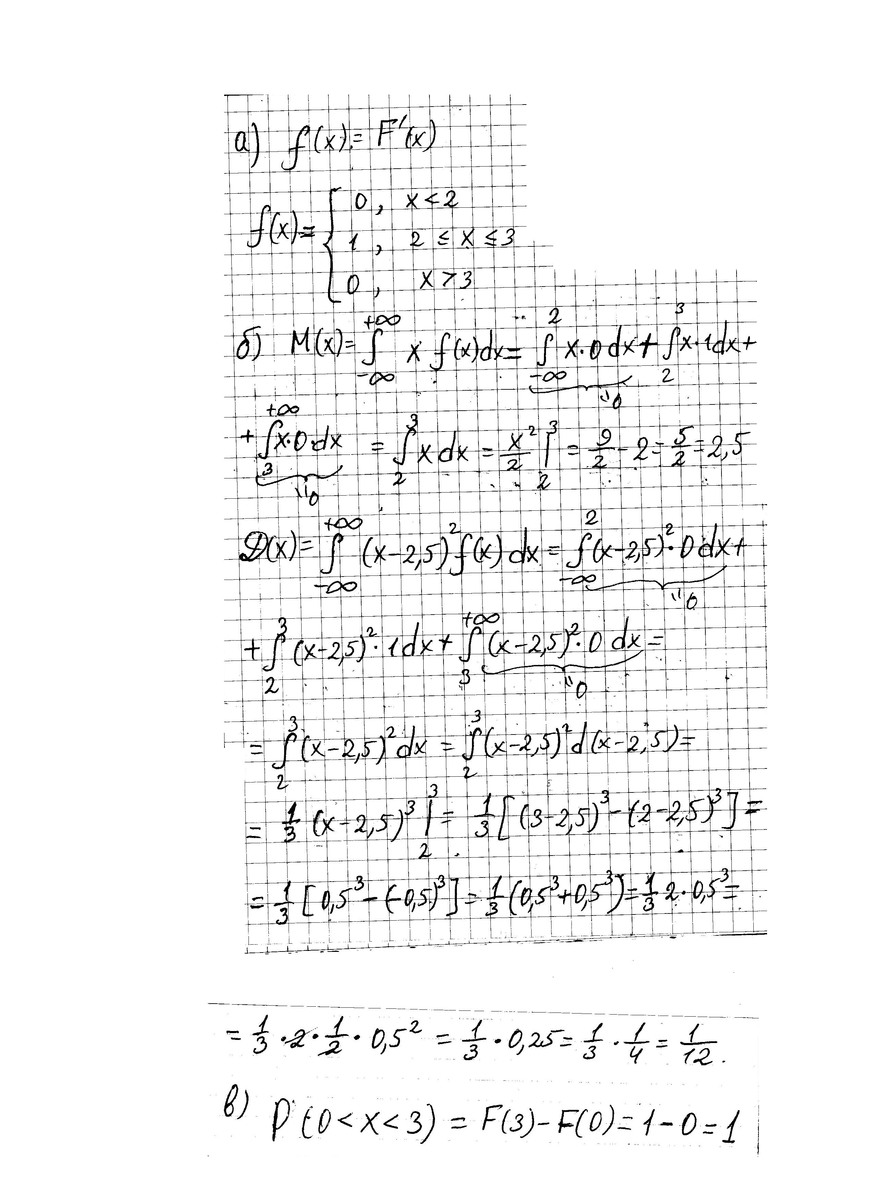 а) f(x) = F'(x)
f(x) = { 0, x < 2
1, 2 ≤ x ≤ 3
0, x > 3
б) M(x) = ∫_{-∞}^{+∞} x f(x)dx = ∫_{-∞}^{2} x·0 dx + ∫_{2}^{3} x·1dx +
+ ∫_{3}^{+∞} x·0·dx = ∫_{2}^{3} x dx = x²/2 |_{2}^{3} = 9/2 - 2 = 5/2 = 2,5
D(x) = ∫_{-∞}^{+∞} (x-2,5)² f(x) dx = ∫_{-∞}^{2} (x-2,5)²·0 dx +
+ ∫_{2}^{3} (x-2,5)²·1dx + ∫_{3}^{+∞} (x-2,5)²·0 dx =
= ∫_{2}^{3} (x-2,5)² dx = ∫_{2}^{3} (x-2,5)² d(x-2,5) =
= 1/3 (x-2,5)³ |_{2}^{3} = 1/3 [(3-2,5)³ - (2-2,5)³] =
= 1/3 [0,5³ - (-0,5)³] = 1/3 (0,5³ + 0,5³) = 1/3 2·0,5³ =
= 1/3 · 2 · 1/2 · 0,5² = 1/3 · 0,25 = 1/3 · 1/4 = 1/12.
в) P(0 < x < 3) = F(3) - F(0) = 1 - 0 = 1